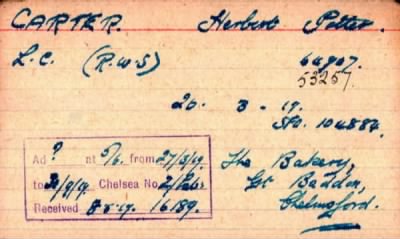 CARTER. Herbert Peter.
L.C. (R.W.S) 64907.
53257
20. 3 - 19.
104884.
Ad ? at 5/6. from 27/3/19.
to 30/9/19. Chelsea No.
Received 8-5-19. 16189.
The Bakery,
Gt Baddow,
Chelmsford.